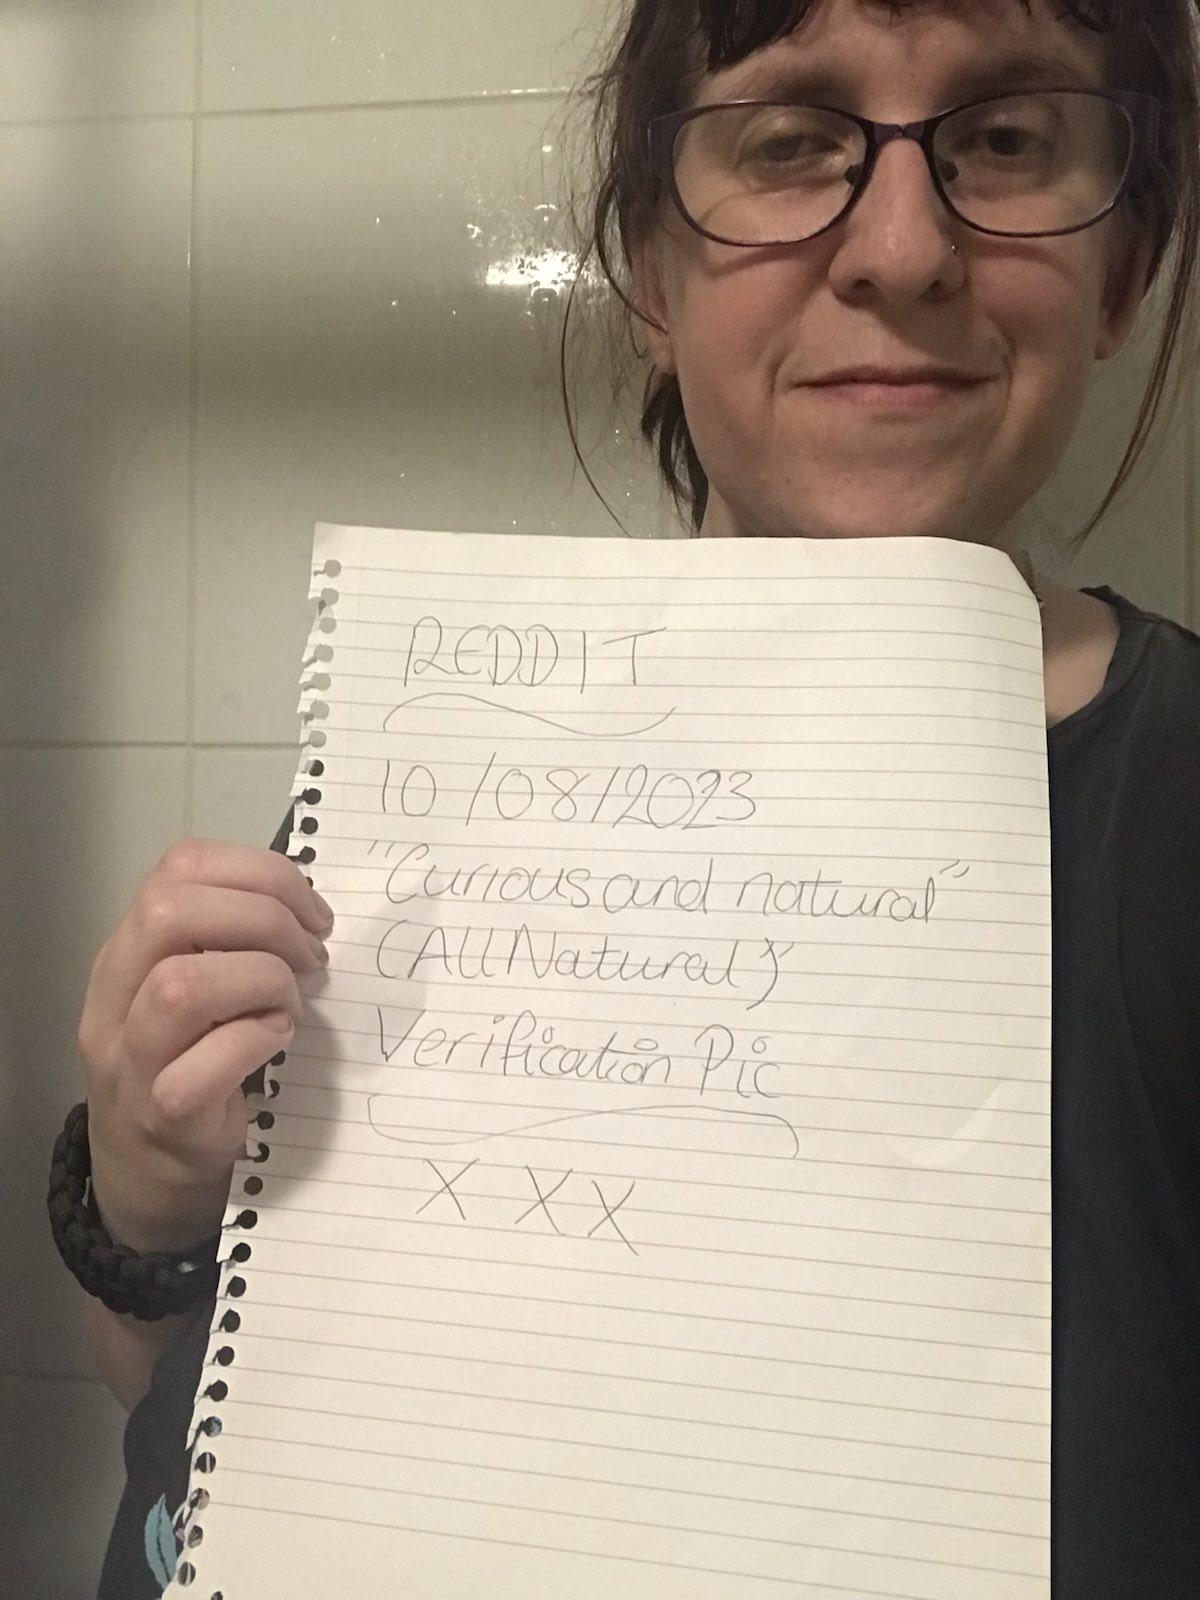 REDDIT
10/08/2023
"Curious and natural"
(AllNatural)
Verification Pic
X X X